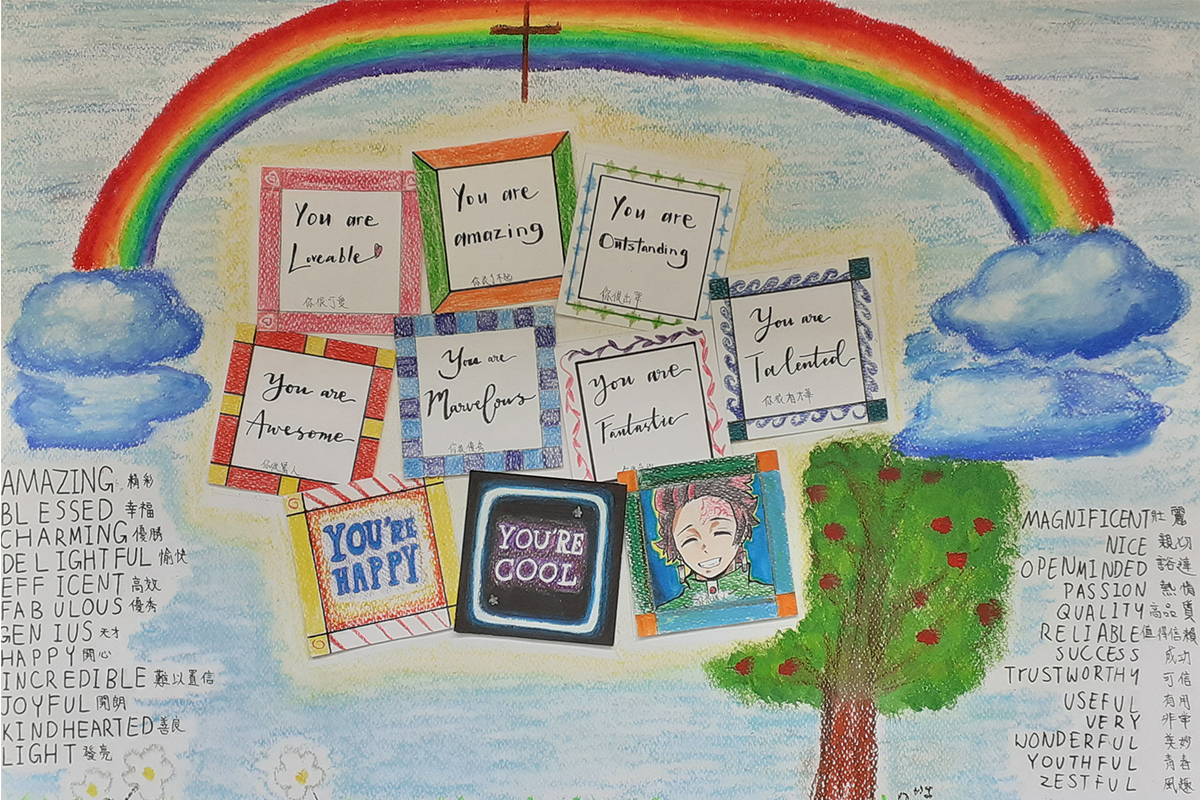 You are
Loveable
你很可愛
You are
amazing
你很了不起
You are
Outstanding
你很出眾
You are
Talented
You are
Awesome
你很驚人
You are
Marvelous
你很優秀
You are
Fantastic
YOU'RE
HAPPY
YOU'RE
COOL
AMAZING 精彩
BLESSED 幸福
CHARMING 優勝
DELIGHTFUL 愉快
EFFICENT 高效
FABULOUS 優秀
GENIUS 天才
HAPPY 開心
INCREDIBLE 難以置信
JOYFUL 開朗
KINDHEARTED 善良
LIGHT 發亮
MAGNIFICENT 壯麗
NICE 親切
OPENMINDED 豁達
PASSION 熱情
QUALITY 高品質
RELIABLE 值得信賴
SUCCESS 成功
TRUSTWORTHY 可信
USEFUL 有用
VERY 非常
WONDERFUL 美妙
YOUTHFUL 青春
ZESTFUL 風趣